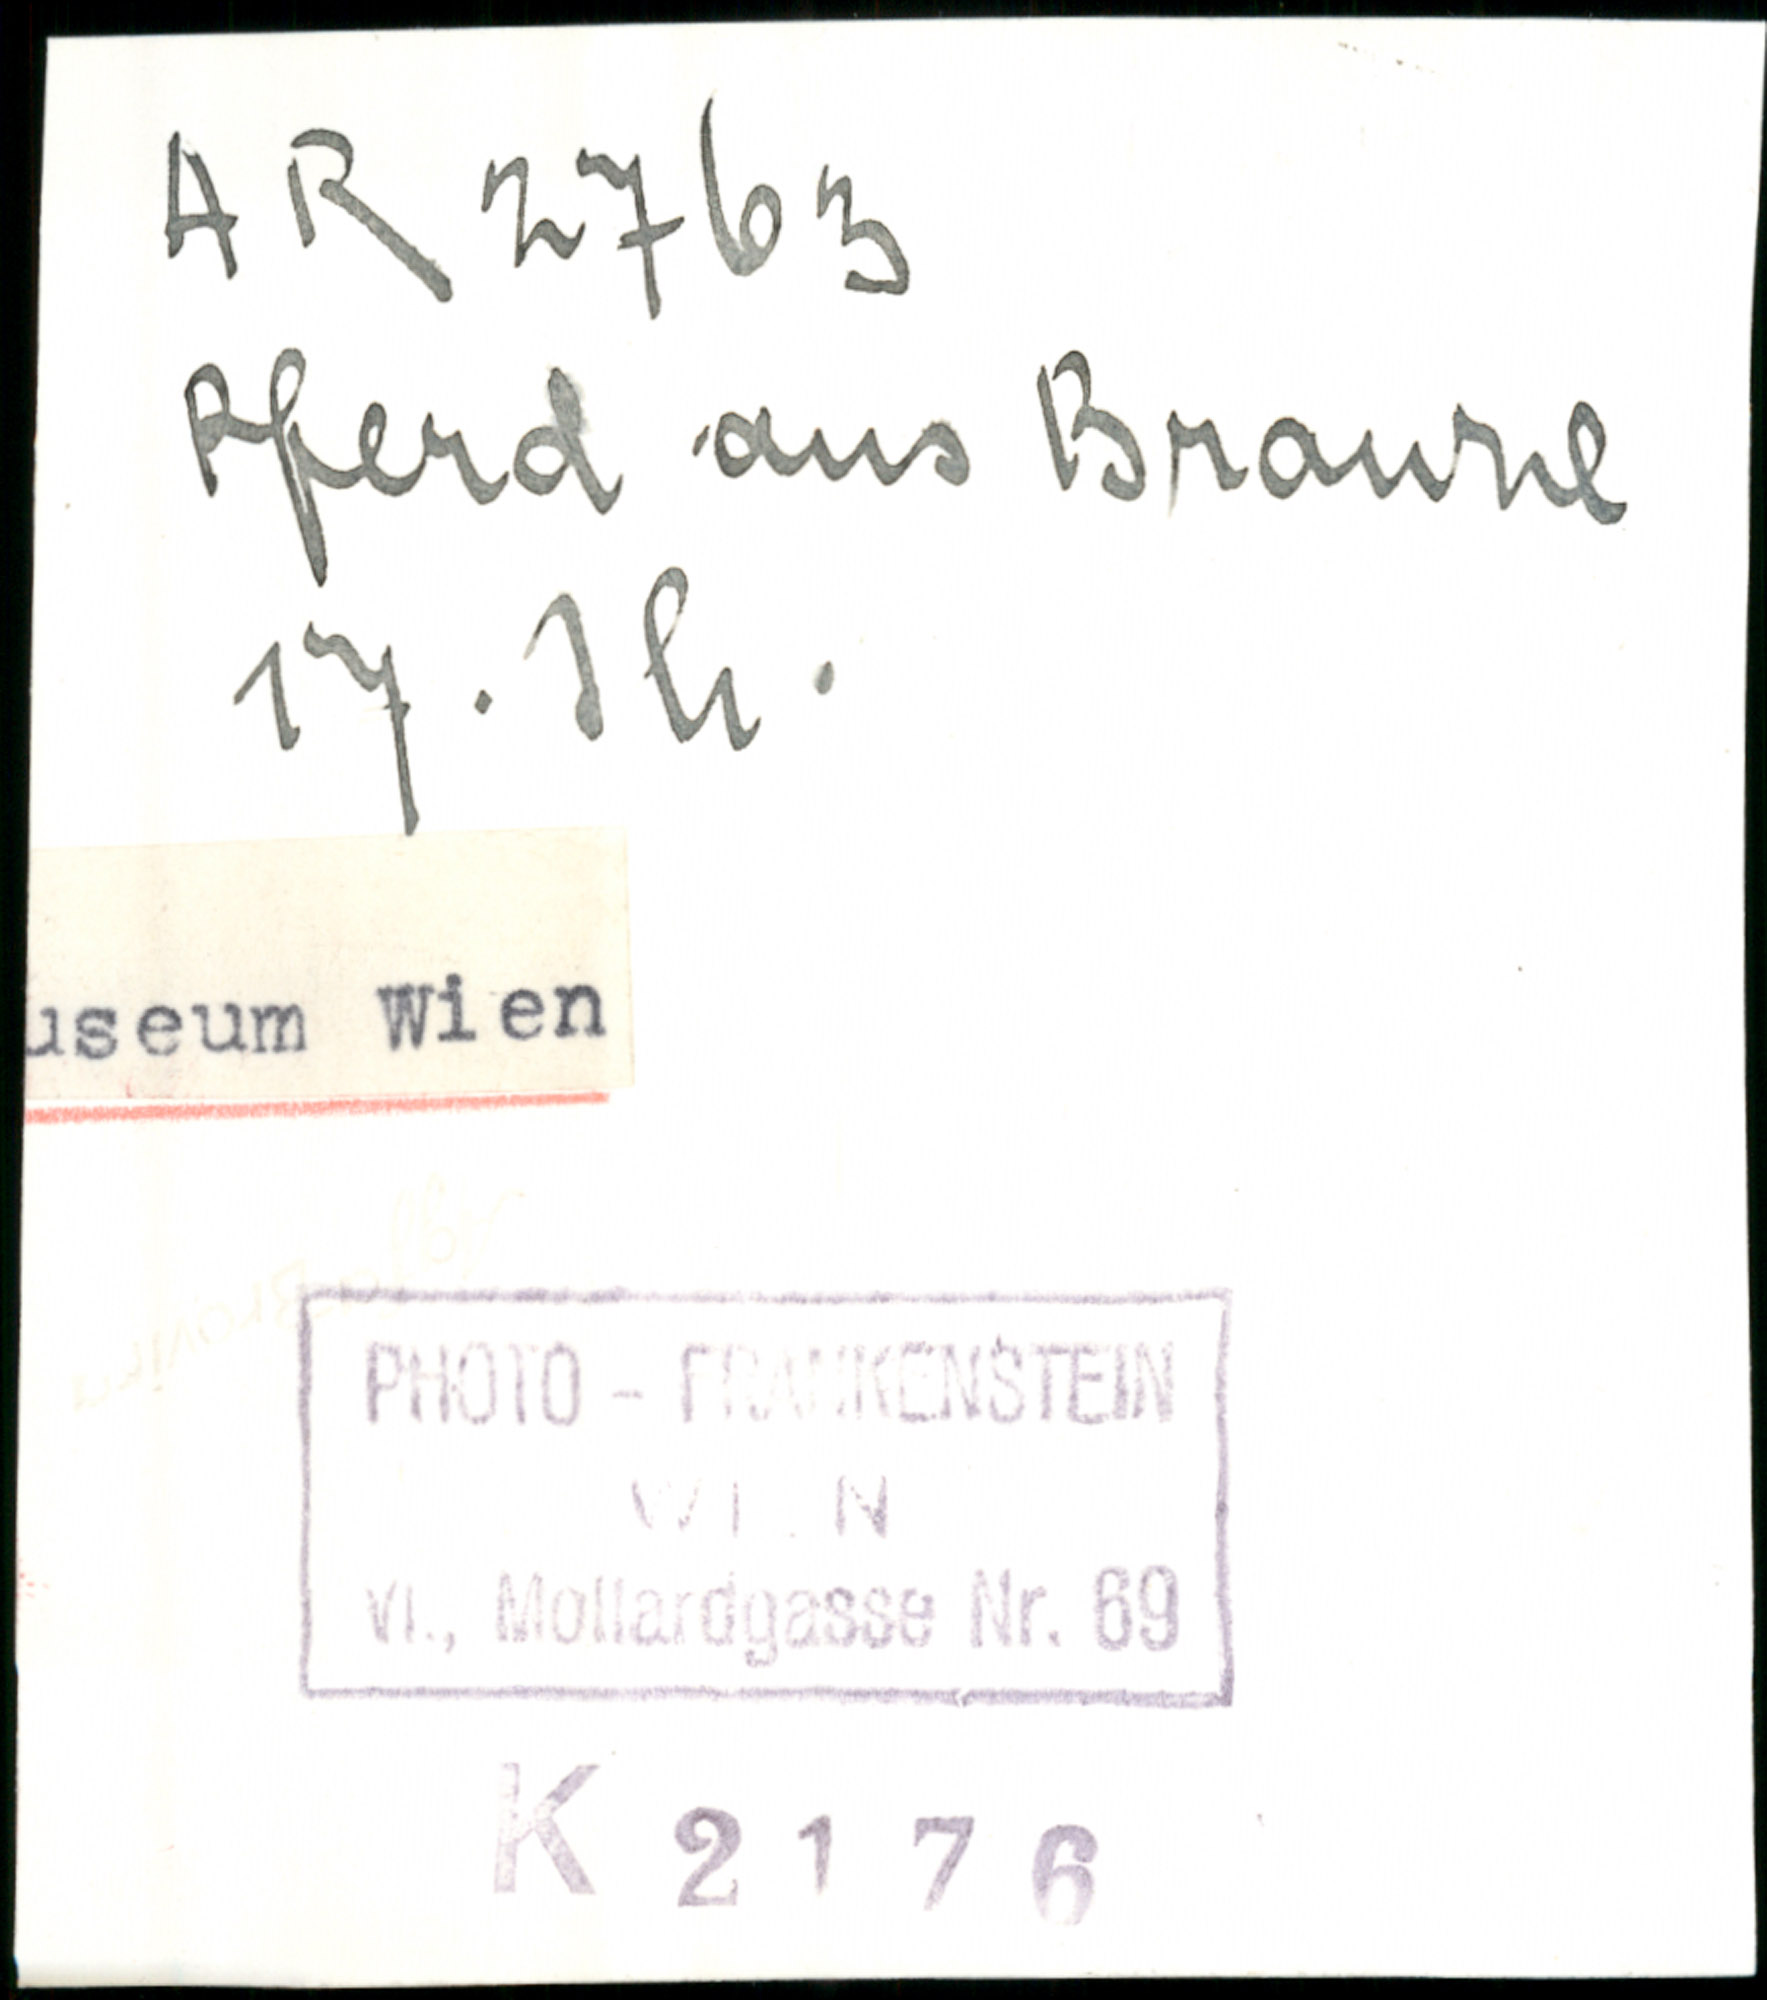 AR 2763
Pferd aus Bronze
17. Jh.
useum Wien
PHOTO - FRANKENSTEIN
WIEN
VI., Mollardgasse Nr. 69
K 2176